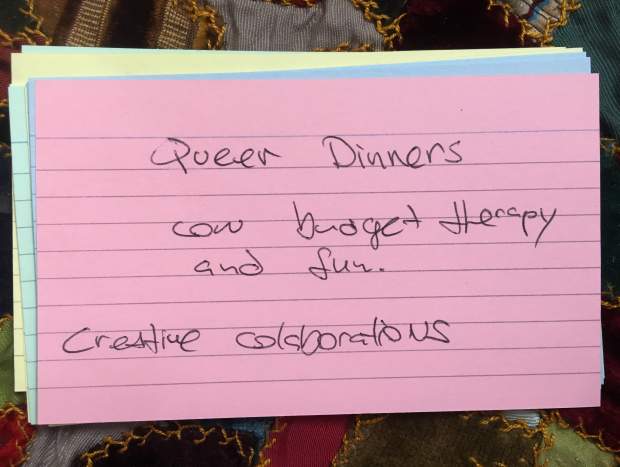 Queer Dinners
low budget therapy
and fun.
Creative colaborations